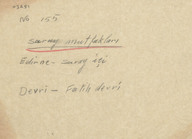 No 155
Saray mutfakları
Edirne - saray içi
Devri - Fatih devri